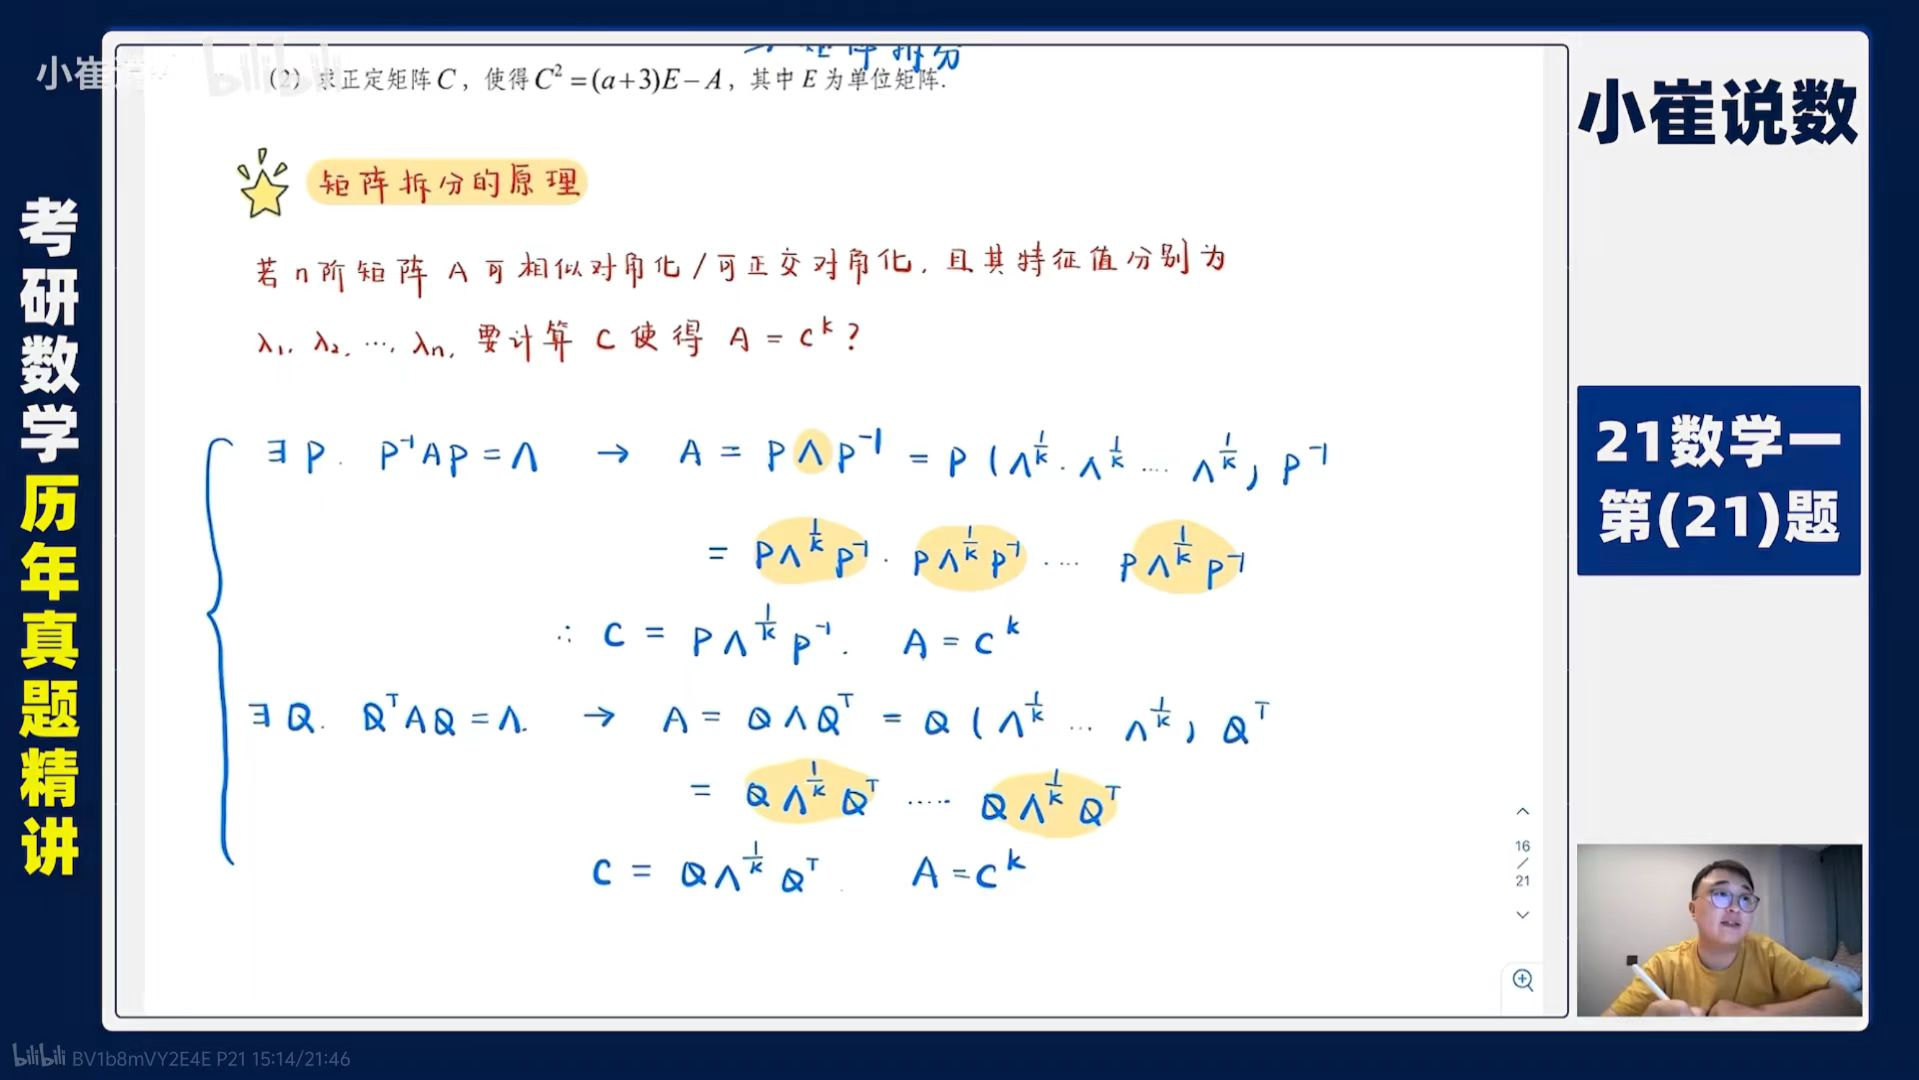 二、矩阵拆分
小崔说数 bilibili
(2) 求正定矩阵C，使得C²=(a+3)E−A，其中E为单位矩阵.
小崔说数
矩阵拆分的原理
若n阶矩阵 A 可相似对角化/可正交对角化, 且其特征值分别为
λ₁, λ₂, …, λn, 要计算 C 使得 A = C^k ?
∃ P. P⁻¹AP = Λ → A = PΛP⁻¹ = P (Λ^{1/k} · Λ^{1/k} …. Λ^{1/k}) P⁻¹
= PΛ^{1/k}P⁻¹ · PΛ^{1/k}P⁻¹ · …. PΛ^{1/k}P⁻¹
∴ C = PΛ^{1/k}P⁻¹. A = C^k
∃ Q. QᵀAQ = Λ. → A = QΛQᵀ = Q (Λ^{1/k} … Λ^{1/k}) Qᵀ
= QΛ^{1/k}Qᵀ ….. QΛ^{1/k}Qᵀ
C = QΛ^{1/k}Qᵀ. A = C^k
考研数学历年真题精讲
21数学一
第(21)题
16
/
21
bilibili BV1b8mVY2E4E P21 15:14/21:46